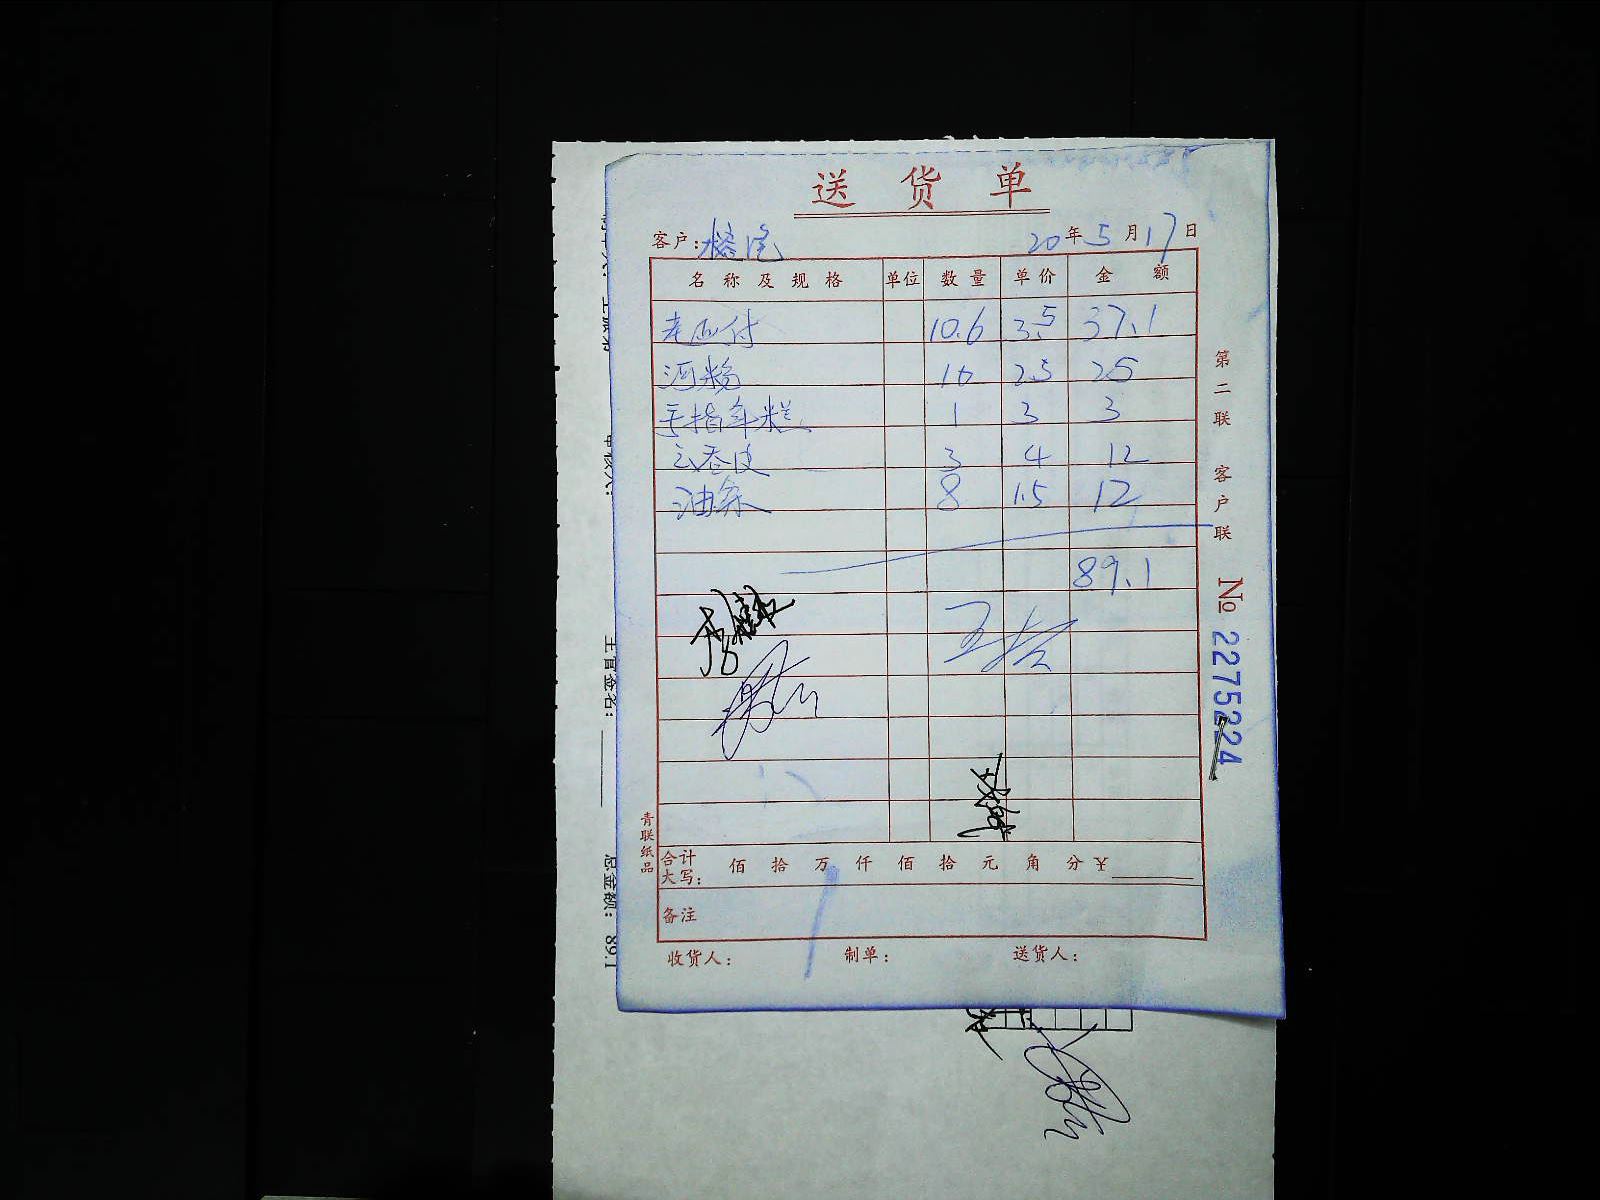 送货单
客户: 20年5月17日
名称及规格 单位 数量 单价 金额
10.6 3.5 37.1
河粉 10 2.5 25
手指年糕 1 3 3
云吞皮 3 4 12
油条 8 1.5 12
89.1
合计大写: 佰拾万仟佰拾元角分¥
备注
收货人: 制单: 送货人:
第二联 客户联
№ 2275224
青联纸品
审核人:
主管签名:
总金额: 89.1